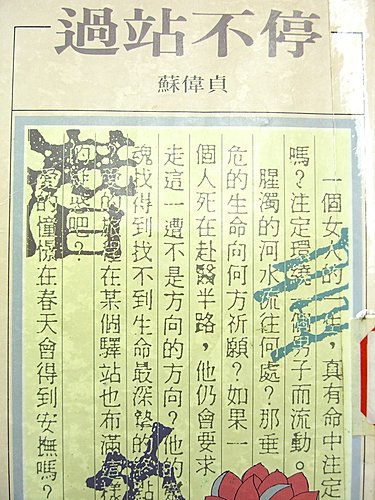 過站不停
蘇偉貞
一個女人的一生，真有命中注定
嗎？注定環繞一個男子而流動。
腥濁的河水流往何處？那垂
危的生命向何方祈願？如果一
個人死在赴醫半路，他仍會要求
走這一遭不是方向的方向？他的靈
魂找得到找不到生命最深摯的站
愛的旅程在某個驛站也布滿這樣
的吧？
愛的憧憬在春天會得到安撫嗎？